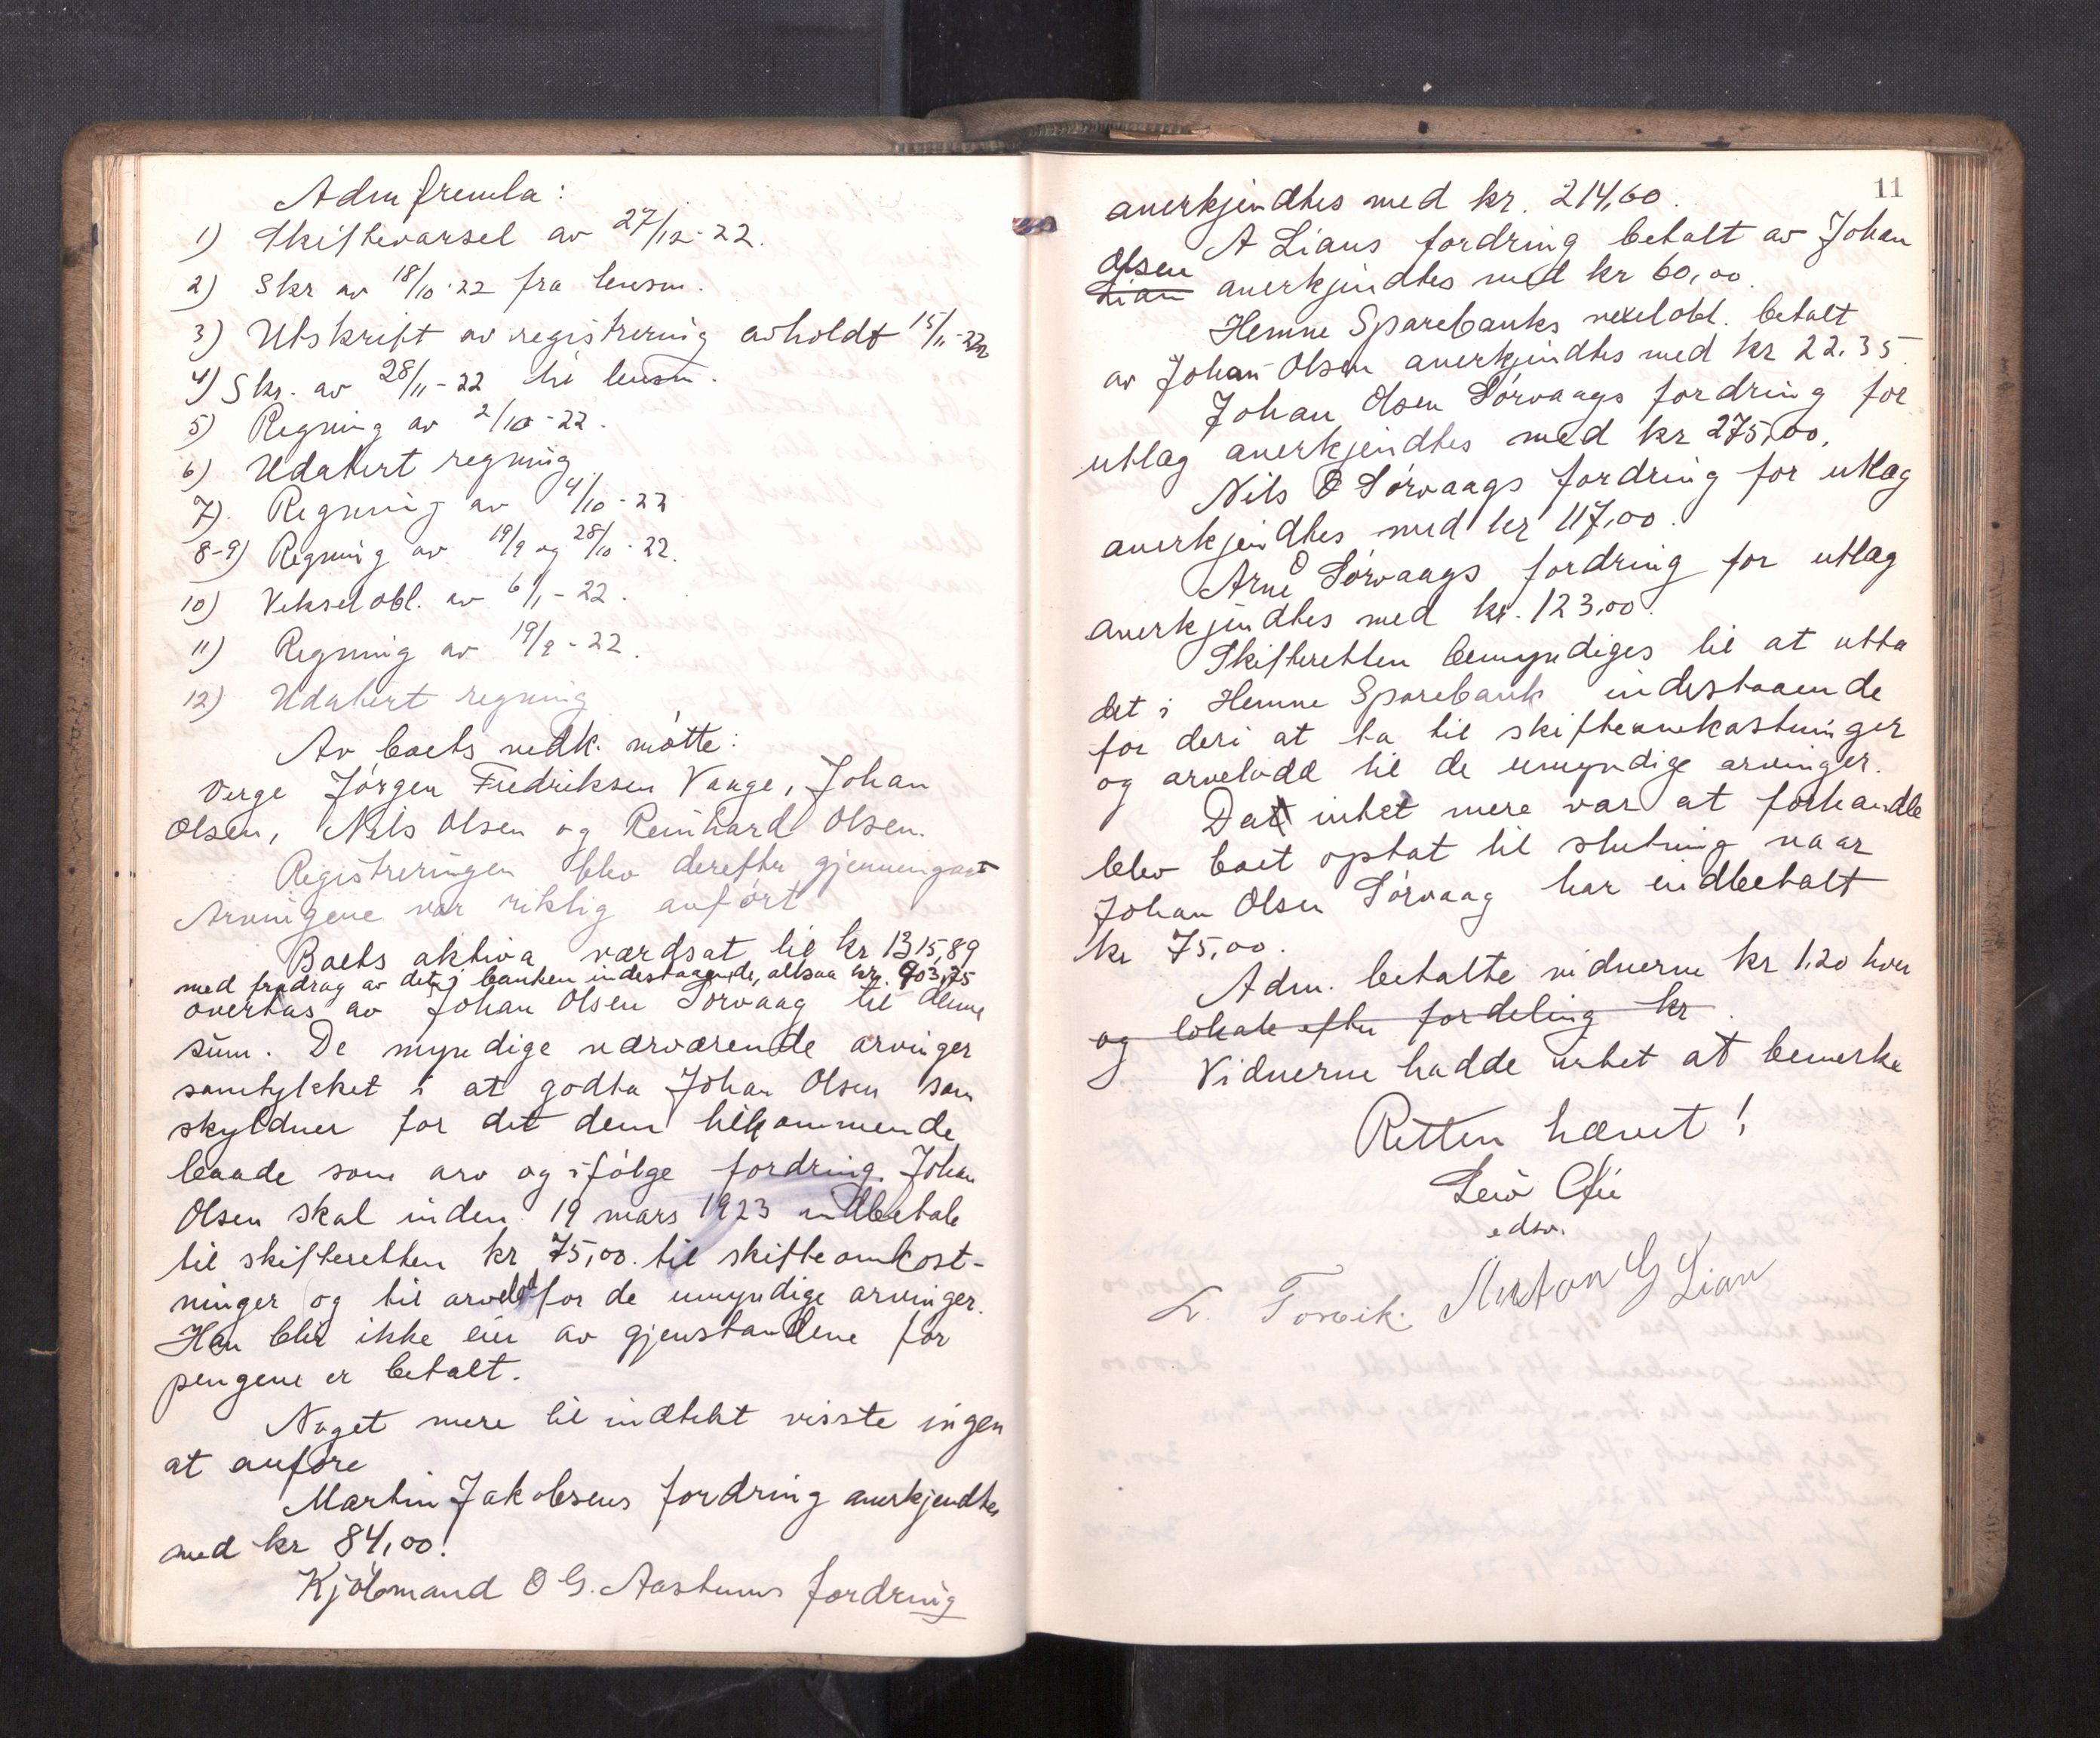 Adm fremla:
1) Skiftevarsel av 27/12-22.
2) Skr av 18/10-22 fra lensm.
3) Utskrift av registrering avholdt 15/11-22
4) Skr. av 28/11-22 til lensm.
5) Regning av 2/10-22.
6) Udatert regning
7) Regning av 4/10-22
8-9) Regning av 19/9 og 28/10-22.
10) Vekselobl. av 6/1-22.
11) Regning av 19/9-22.
12) Udatert regning
Av boets vedk. møtte:
Verge Jørgen Fredriksen Vaage, Johan
Olsen, Nils Olsen og Reinhard Olsen.
Registreringen blev derefter gjennemgaat
Arvingene var riktig anført
Boets aktiva værdsat til kr 1315,89
med fradrag av det i banken indestaaende, altsaa kr. 903,75
overtas av Johan Olsen Sørvaag til denne
sum. De myndige nærværende arvinger
samtykket i at godta Johan Olsen som
skyldner for det dem tilkommende
baade som arv og ifølge fordring. Johan
Olsen skal inden 19 mars 1923 indbetale
til skifteretten kr 75,00 til skifteomkost-
ninger og til arv for de umyndige arvinger.
Han blir ikke eier av gjenstandene før
pengene er betalt.
Noget mere til indtekt visste ingen
at anføre
Martin Jakobsens fordring anerkjendtes
med kr 84,00.
Kjøbmand O G. Aastums fordring
11
anerkjendtes med kr. 214,60.
A Lians fordring betalt av Johan
Olsen
Lian anerkjendtes med kr 60,00.
Hemne Sparebanks vexelobl. betalt
av Johan Olsen anerkjendtes med kr 22.35
Johan Olsen Sørvaags fordring for
utlag anerkjendtes med kr 275,00.
Nils O Sørvaags fordring for utlag
anerkjendtes med kr 117,00.
Arne O Sørvaags fordring for utlag
anerkjendtes med kr. 123,00.
Skifteretten bemyndiges til at utta
det i Hemne Sparebank indestaaende
for deri at ta til skifteomkostninger
og arvelodd til de umyndige arvinger.
Da intet mere var at forhandle
blev boet optat til slutning naar
Johan Olsen Sørvaag har indbetalt
kr 75,00.
Adm. betalte vidnerne kr 1,20 hver
og lokale efter fordeling kr.
Vidnerne hadde intet at bemerke
Retten hævet!
edsv.
L. Torvik. Anton G Lian